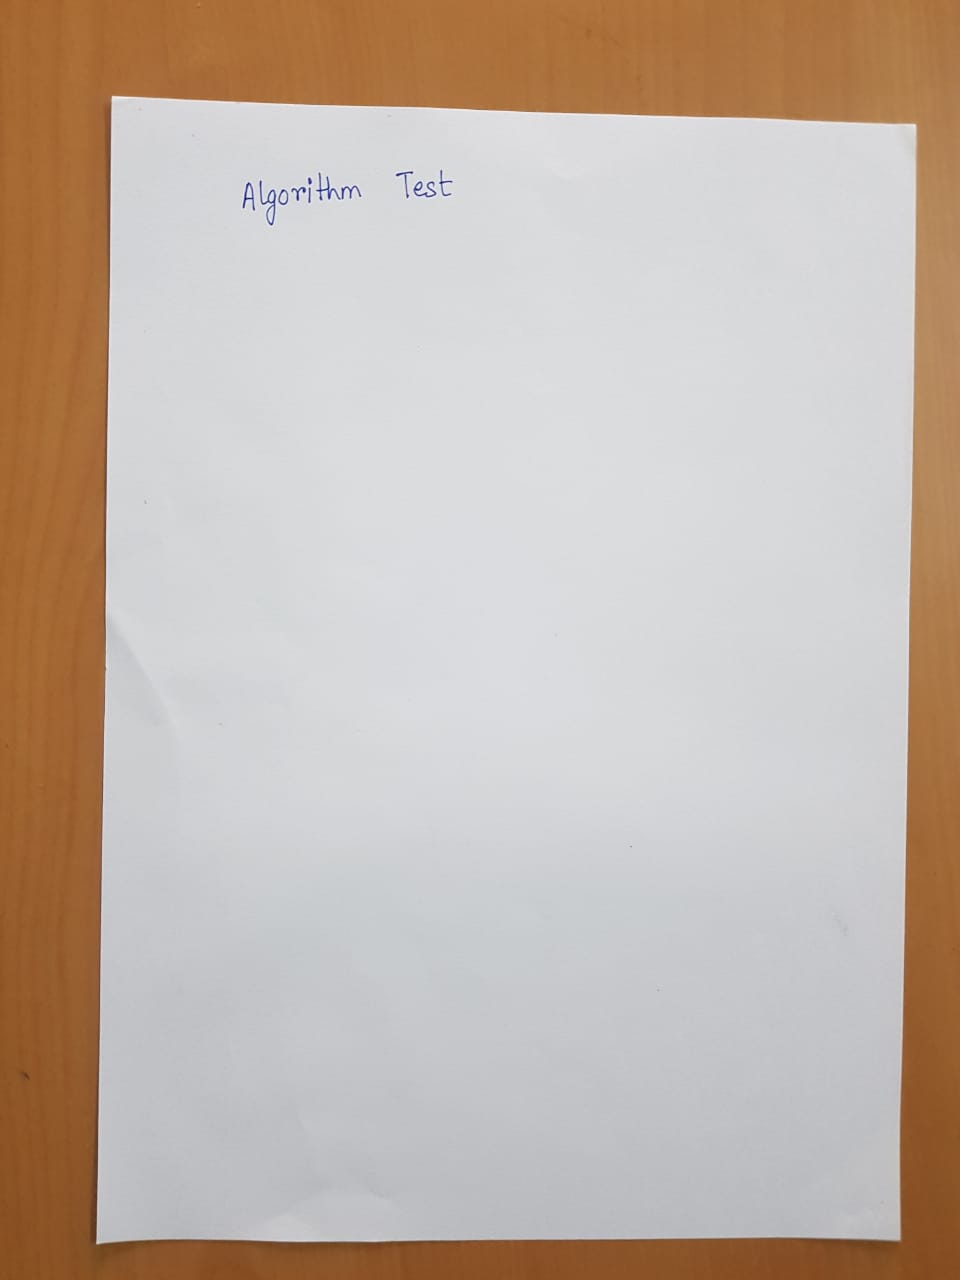 Algorithm Test